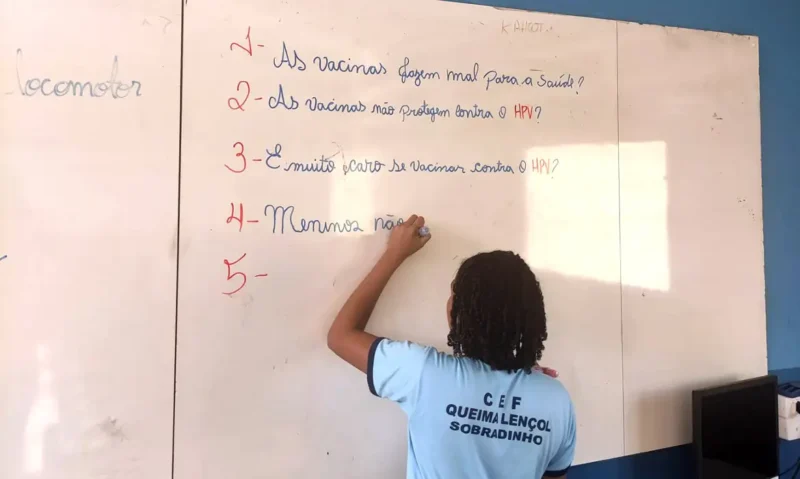 KAHOOT
locomotor
1- As vacinas fazem mal para a saúde?
2- As vacinas não protegem contra o HPV?
3- É muito caro se vacinar contra o HPV?
4- Meninos não
5-
CEF
QUEIMA LENÇOL
SOBRADINHO